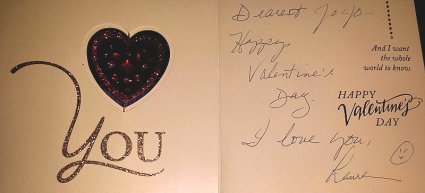 YOU
Dearest JoJo-
Happy
Valentine's
Day.
I love you,
And I want
the whole
world to know.
HAPPY
Valentine's
DAY